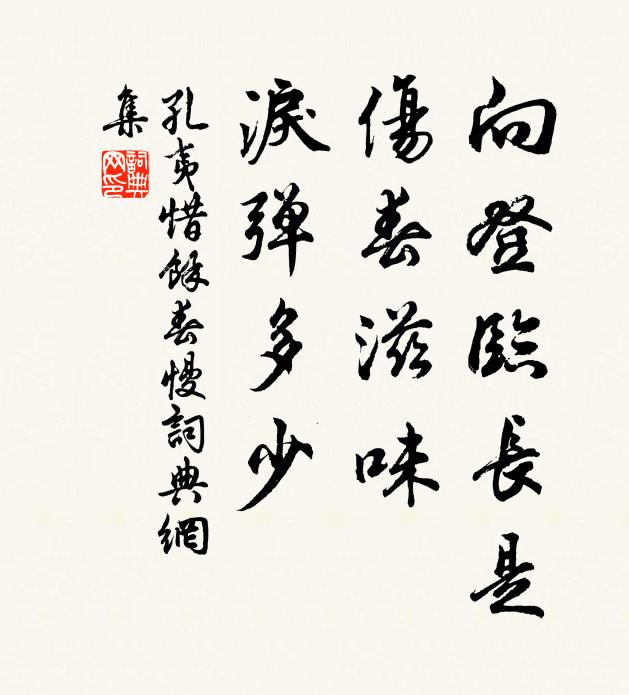 向登臨長是
傷春滋味
淚彈多少
孔夷惜餘春慢詞典網
集
詞典
网印